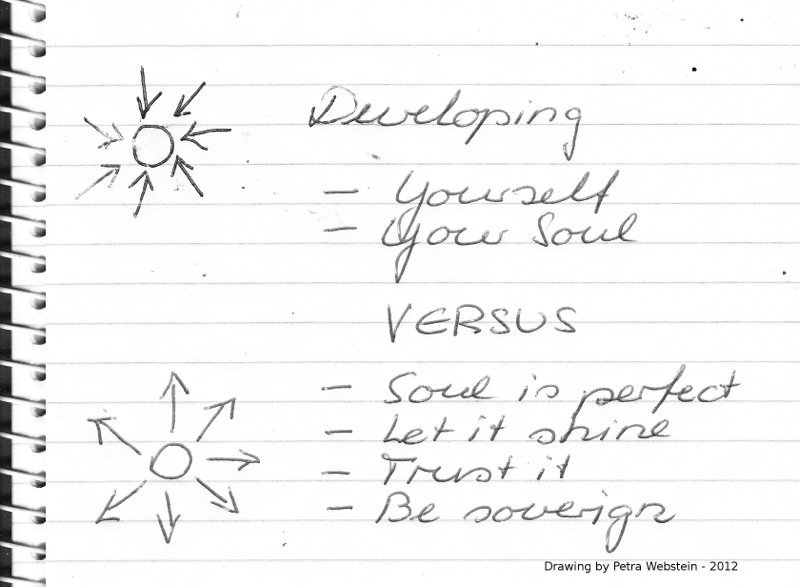 Developing
- Yourself
- Your Soul
VERSUS
- Soul is perfect
- Let it shine
- Trust it
- Be soverign
Drawing by Petra Webstein - 2012